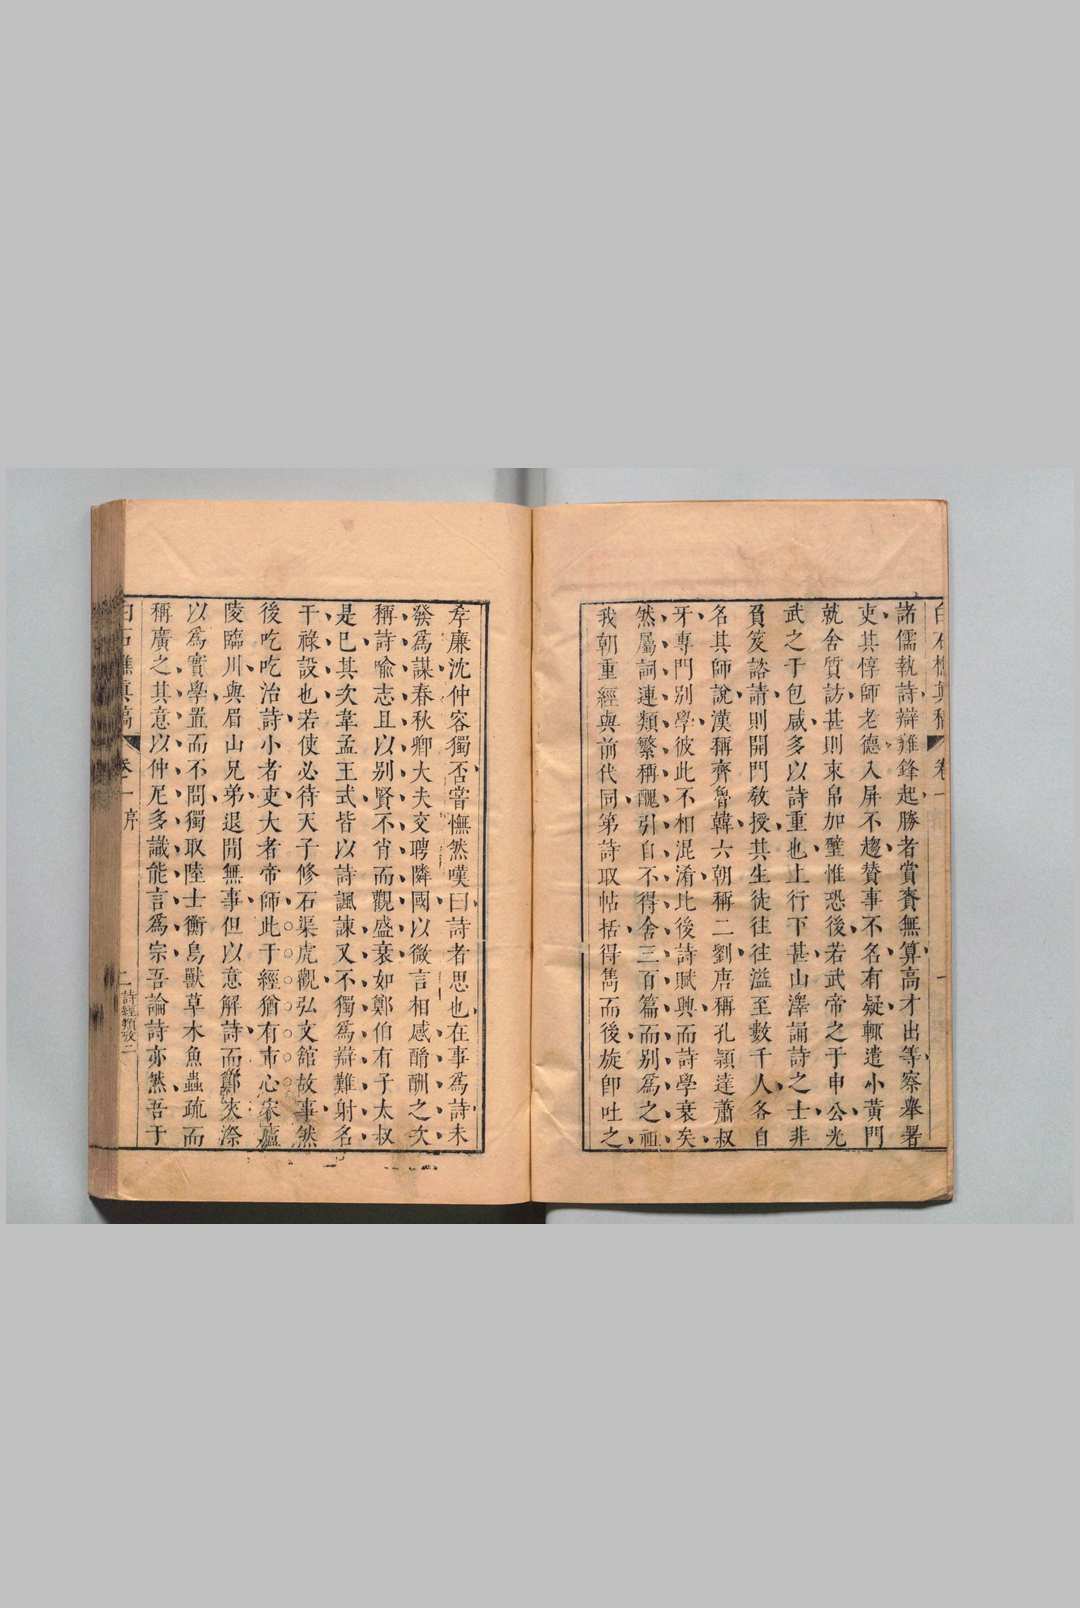 諸儒執詩辯難鋒起勝者賞賚無算高才出等察舉署
吏其惇師老德入屏不趨贊事不名有疑輒遣小黃門
就舍質訪甚則束帛加璧惟恐後若武帝之于申公光
武之于包咸多以詩重也上行下甚山澤誦詩之士非
負笈諮請則開門敎授其生徒往往溢至數千人各自
名其師說漢稱齊魯韓六朝稱二劉唐稱孔穎達蕭叔
牙專門別學彼此不相混淆比後詩賦興而詩學衰矣
然屬詞連類繁稱醜引自不得舍三百篇而別爲之祖
我朝重經與前代同第詩取帖括得雋而後旋卽吐之
孝廉沈仲容獨否嘗憮然嘆曰詩者思也在事爲詩未
發爲謀春秋卿大夫交聘隣國以微言相感酳酬之次
稱詩喻志且以别賢不肖而觀盛衰如鄭伯有子太叔
是已其次韋孟王式皆以詩諷諫又不獨爲辯難射名
干祿設也若使必待天子修石渠虎觀弘文館故事然
後吃吃治詩小者吏大者帝師此于經猶有市心宋廬
陵臨川與眉山兄弟退閒無事但以意解詩而鄭夾漈
以爲實學置而不問獨取陸士衡鳥獸草木魚蟲疏而
稱廣之其意以仲尼多識能言爲宗吾論詩亦然吾于
白石樵真稿 卷一 序 二 詩經類攷二